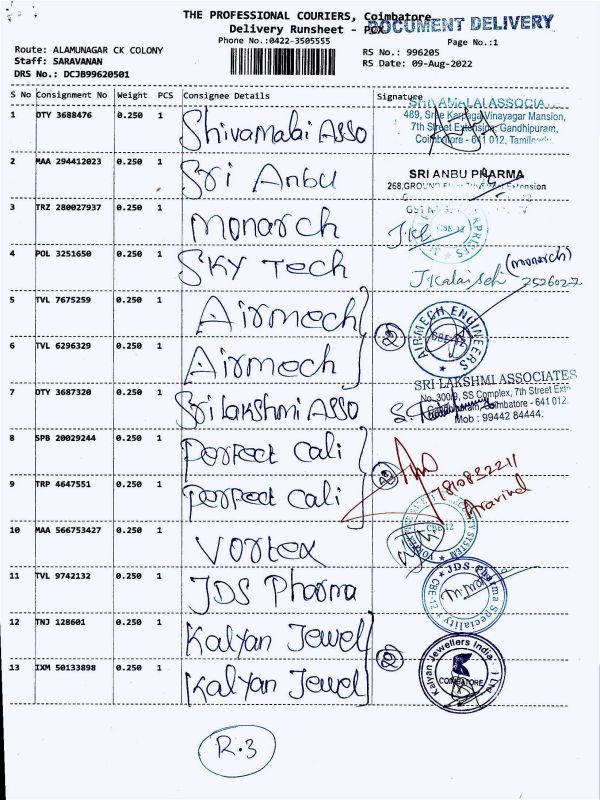 THE PROFESSIONAL COURIERS, Coimbatore
Delivery Runsheet - PCX
DOCUMENT DELIVERY
Phone No.:0422-3505555
Page No.:1
Route: ALAMUNAGAR CK COLONY
RS No.: 996205
Staff: SARAVANAN
RS Date: 09-Aug-2022
DRS No.: DCJB99620501
S No Consignment No Weight PCS Consignee Details Signature
1 OTY 3688476 0.250 1 Shivamalai Asso
489, Sree Karpaga Vinayagar Mansion,
7th Street Extension, Gandhipuram,
Coimbatore - 641 012,
2 MAA 294412023 0.250 1 Sri Anbu
SRI ANBU PHARMA
3 TRZ 280027937 0.250 1 Monarch
CBE-12
4 POL 3251650 0.250 1 SKY Tech
(monarch)
5 TVL 7675259 0.250 1 Airmech
AIRMECH ENGINEERS
CBE-12
6 TVL 6296329 0.250 1 Airmech
7 OTY 3687320 0.250 1 Sri Lakshmi Asso
SRI LAKSHMI ASSOCIATES
No. 300/9, SS Complex, 7th Street Extn
Gandhipuram, Coimbatore - 641 012.
Mob : 99442 84444.
8 SPB 20029244 0.250 1 Perfect Cali
9 TRP 4647551 0.250 1 Perfect Cali
7810832211
Aravind
10 MAA 566753427 0.250 1 Vortex
CBE-12
11 TVL 9742132 0.250 1 JDS Pharma
JDS Pharma Speciality
CBE-12
12 TNJ 128601 0.250 1 Kalyan Jewel
13 IXM 50133898 0.250 1 Kalyan Jewel
Kalyan Jewellers India
COIMBATORE
R.3